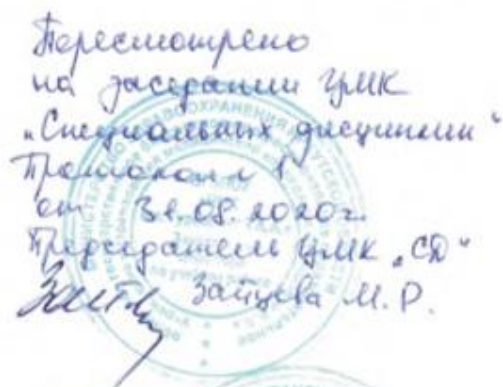 Пересмотрено
на заседании ЦМК
„Специальных дисциплин“
Протокол № 1
от 31.08.2020г.
Председатель ЦМК „СД“
Зайцева М. Р.